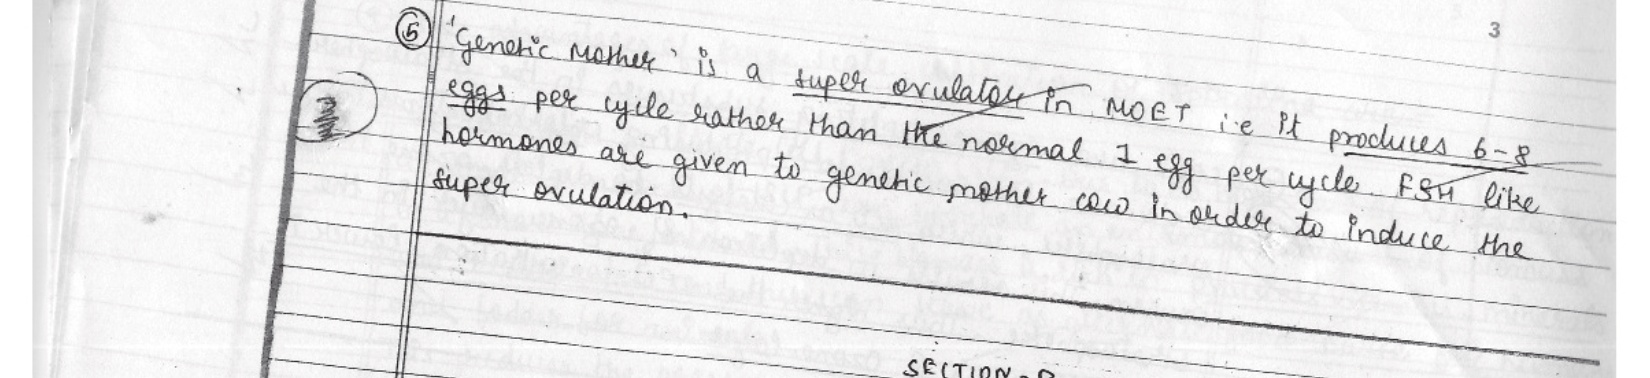 3
⑤ 'Genetic Mother' is a super ovulator in MOET i.e it produces 6-8
eggs per cycle rather than the normal 1 egg per cycle. FSH like
hormones are given to genetic mother cow in order to induce the
super ovulation.
SECTION-